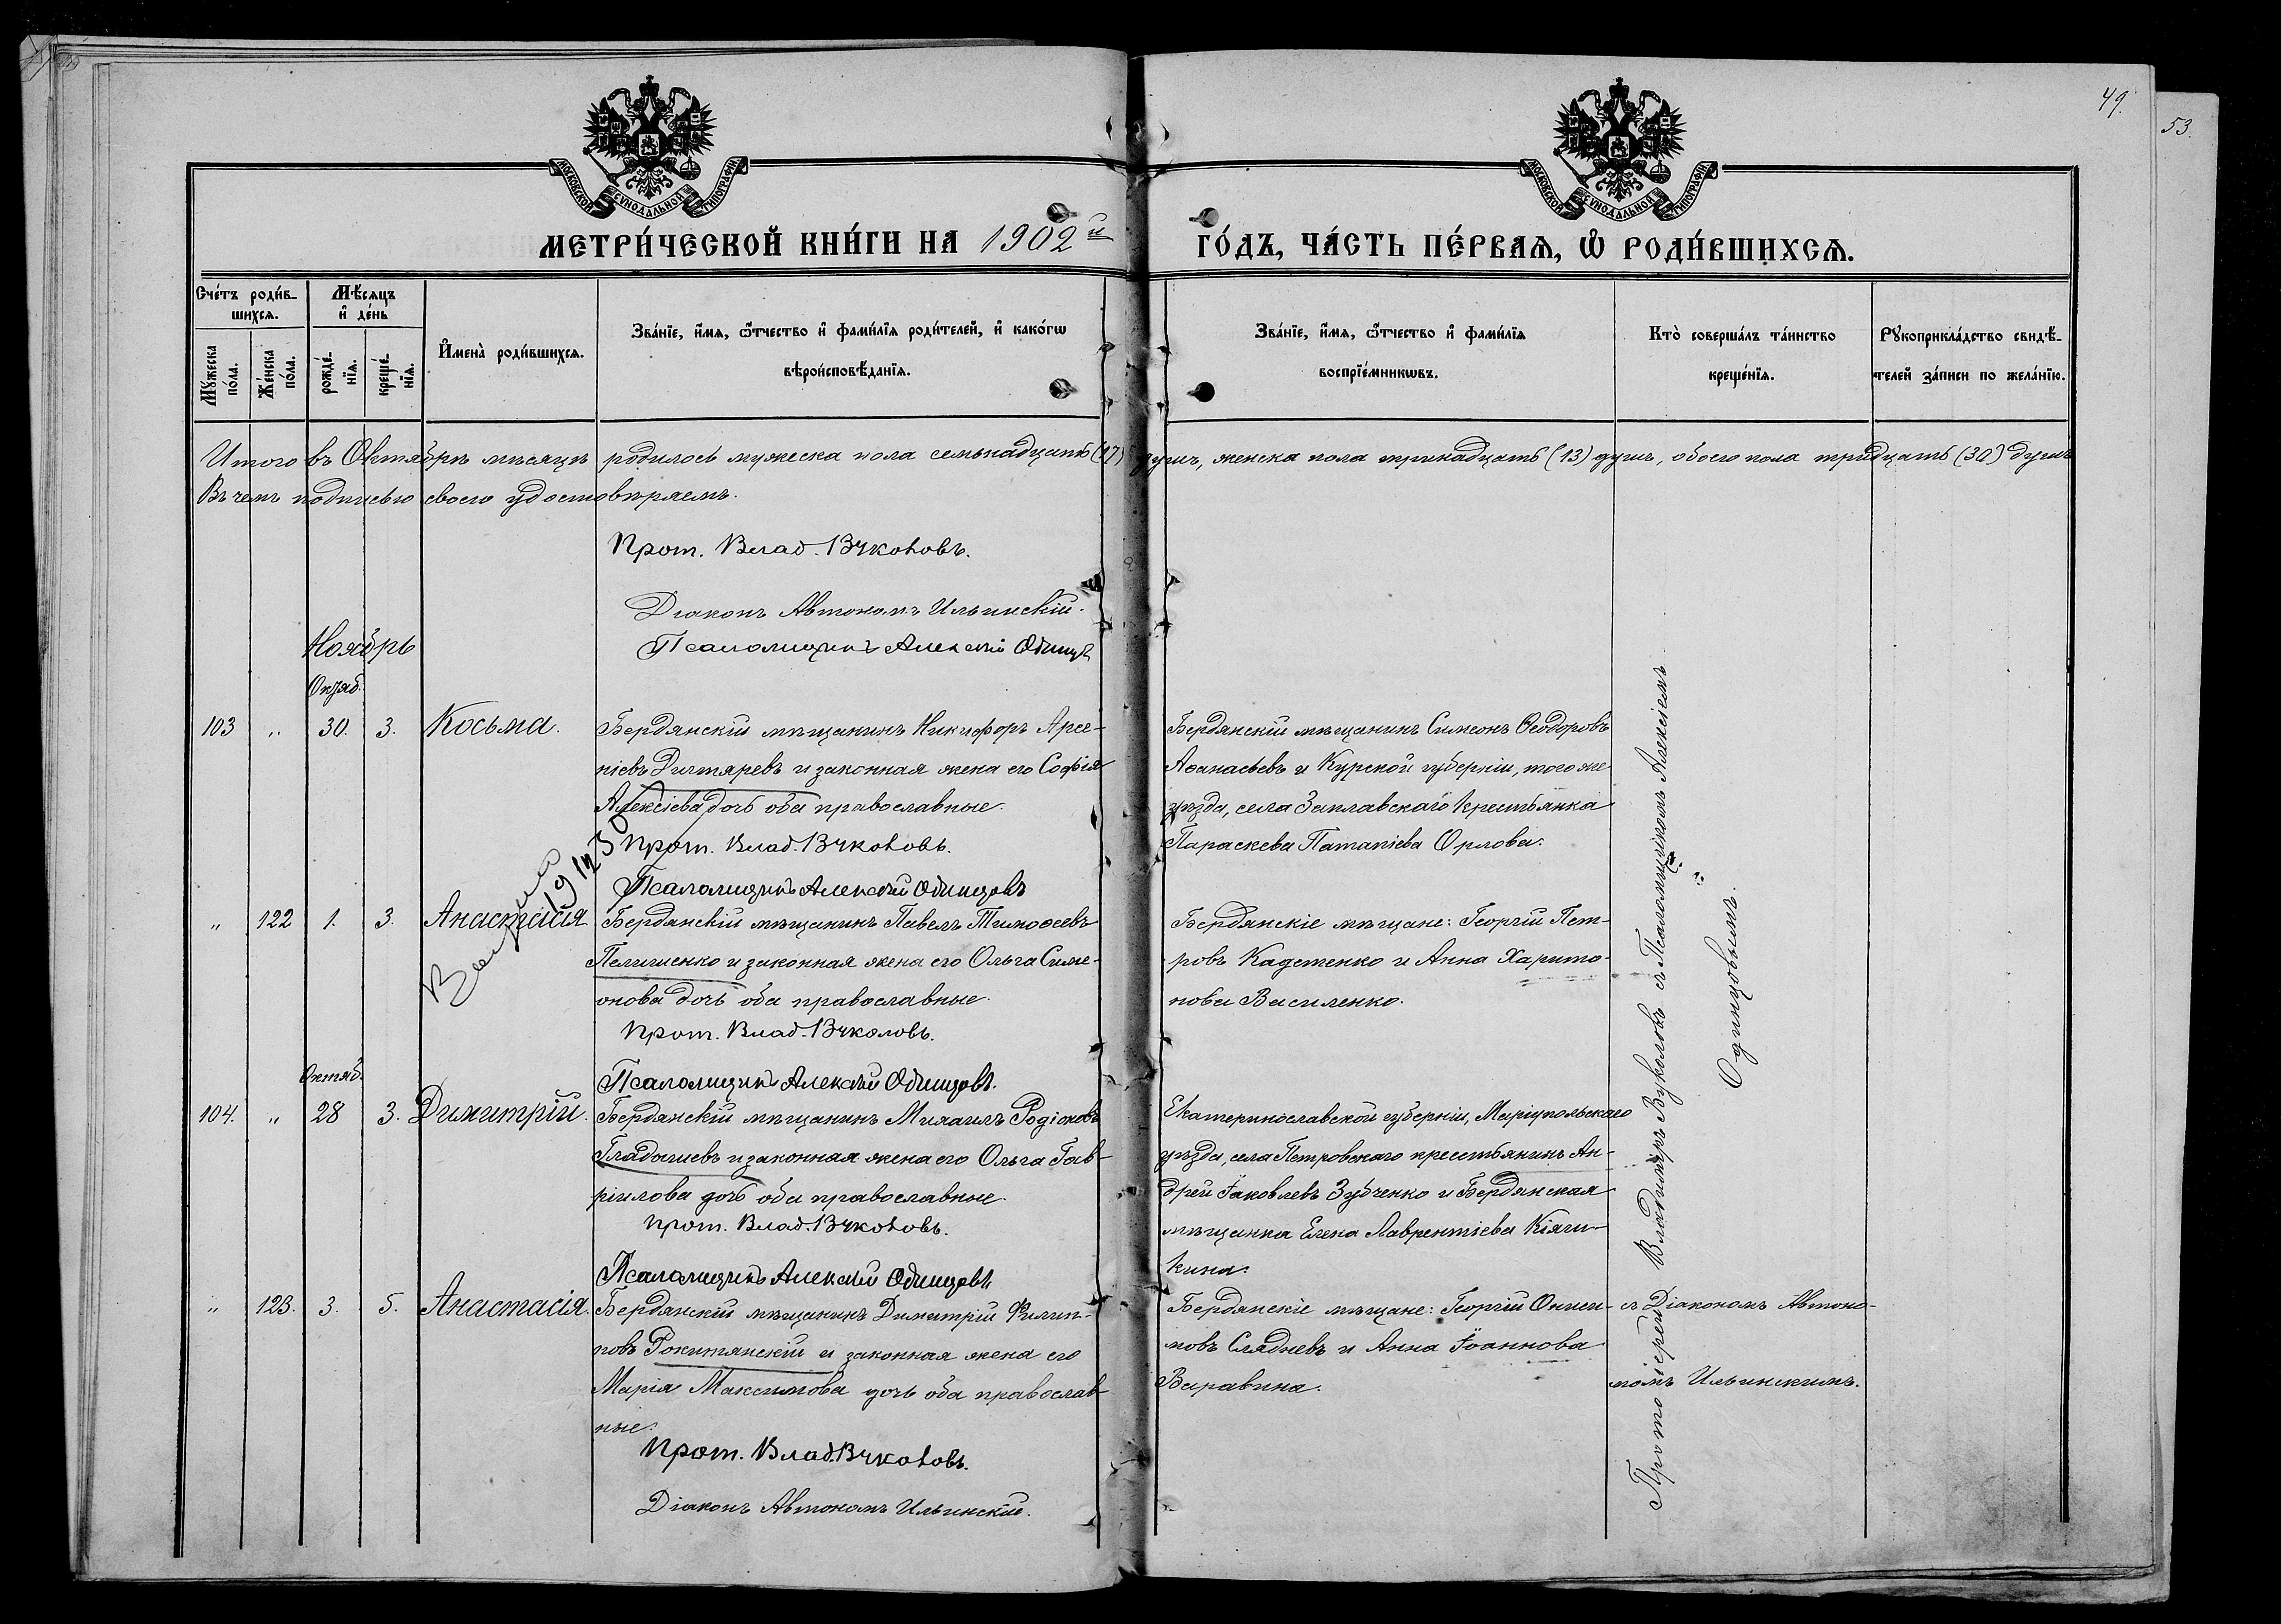 49.
53.
МОСКОВСКОЙ СУНОДАЛЬНОЙ ТИПОГРАФІИ
МОСКОВСКОЙ СУНОДАЛЬНОЙ ТИПОГРАФІИ
МЕТРИ́ЧЕСКОЙ КНИ́ГИ НА 1902й ГО́ДЪ, ЧА́СТЬ ПЕ́РВАѦ, Ѡ҆ РОДИ́ВШИХСѦ.
Сче́тъ роди́в-
шихсѧ.
Мѣ́сѧцъ
и҆ де́нь
Мꙋ́жеска
по́ла.
Же́нска
по́ла.
рожде́-
нїѧ.
креще́-
нїѧ.
И҆мена̀ роди́вшихсѧ.
Зва́нїе, и҆́мѧ, ѻ҆́тчество и҆ фами́лїѧ роди́телей, и҆ како́гѡ
вѣроисповѣ́данїѧ.
Зва́нїе, и҆́мѧ, ѻ҆́тчество и҆ фами́лїѧ
воспрїе́мникѡвъ.
Кто̀ соверша́лъ та́инство
креще́нїѧ.
Рꙋкоприкла́дство свидѣ́-
телей за́писи по жела́нїю.
Итого въ Октябрѣ мѣсяцѣ родилось мужеска пола семьнадцать (17) душъ, женска пола тринадцать (13) душъ, обоего пола тридцать (30) душъ
Въ чемъ подписью своею удостовѣряемъ.
Прот. Влад. Вуколовъ.
Діаконъ Автономъ Ильинскій.
Псаломщикъ Алексѣй Одинцовъ
Ноябрь
Октяб.
103 " 30. 3. Косьма. Бердянскій мѣщанинъ Никифоръ Арсе-
ніевъ Дигтяревъ и законная жена его Софія
Алексіева дочь оба православные.
Прот. Влад. Вуколовъ.
Псаломщикъ Алексѣй Одинцовъ
Бердянскій мѣщанинъ Симеонъ Ѳеодоровъ
Аѳанасьевъ и Курской губерніи, того же
уѣзда, села Заплавскаго крестьянка
Параскева Патапіева Орлова.
" 122 1. 3. Анастасія Бердянскій мѣщанинъ Павелъ Тимоѳеевъ
Пелишенко и законная жена его Ольга Симе-
онова дочь оба православные.
Прот. Влад. Вуколовъ.
Псаломщикъ Алексѣй Одинцовъ.
Бердянскіе мѣщане: Георгій Пет-
ровъ Кадетенко и Анна Харито-
нова Василенко.
Октяб.
104. " 28 3. Димитрій. Бердянскій мѣщанинъ Михаилъ Родіоновъ
Гладышевъ и законная жена его Ольга Гав-
ріилова дочь оба православные.
Прот. Влад. Вуколовъ.
Псаломщикъ Алексѣй Одинцовъ
Екатеринославской губерніи, Маріупольскаго
уѣзда, села Петровскаго крестьянинъ Ан-
дрей Іаковлевъ Зубченко и Бердянская
мѣщанка Елена Лаврентіева Кіяги-
кина.
" 123. 3. 5. Анастасія. Бердянскій мѣщанинъ Димитрій Филип-
повъ Рокитянскій и законная жена его
Марія Максимова дочь оба православ-
ные.
Прот. Влад. Вуколовъ.
Діаконъ Автономъ Ильинскій.
Бердянскіе мѣщане: Георгій Ониси-
мовъ Слядневъ и Анна Іоаннова
Варавина.
Протоіерей Владиміръ Вуколовъ съ Псаломщикомъ Алексіемъ
Одинцовымъ.
съ Діакономъ Автоно-
момъ Ильинскимъ.